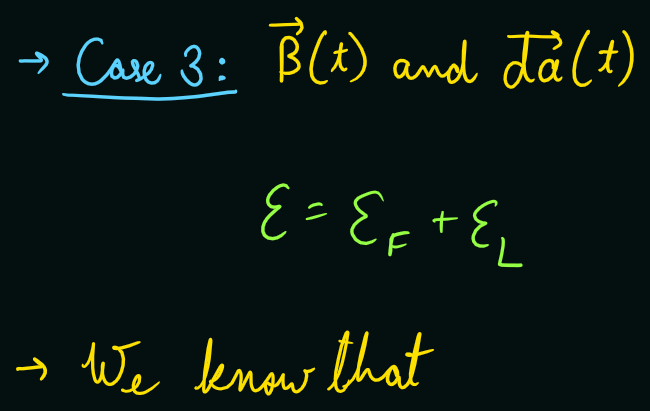 → Case 3: B⃗(t) and d⃗a(t)
ℰ = ℰ_F + ℰ_L
→ We know that